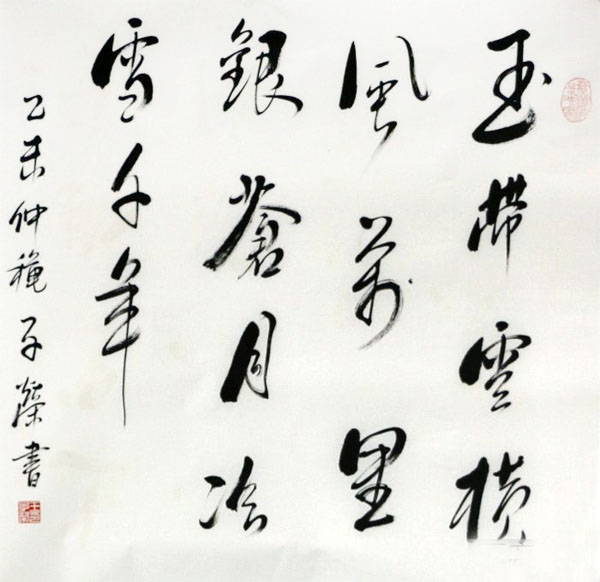 玉帶雲橫
風萬里
銀蒼月冷
雪千年
乙未仲穐子榮書